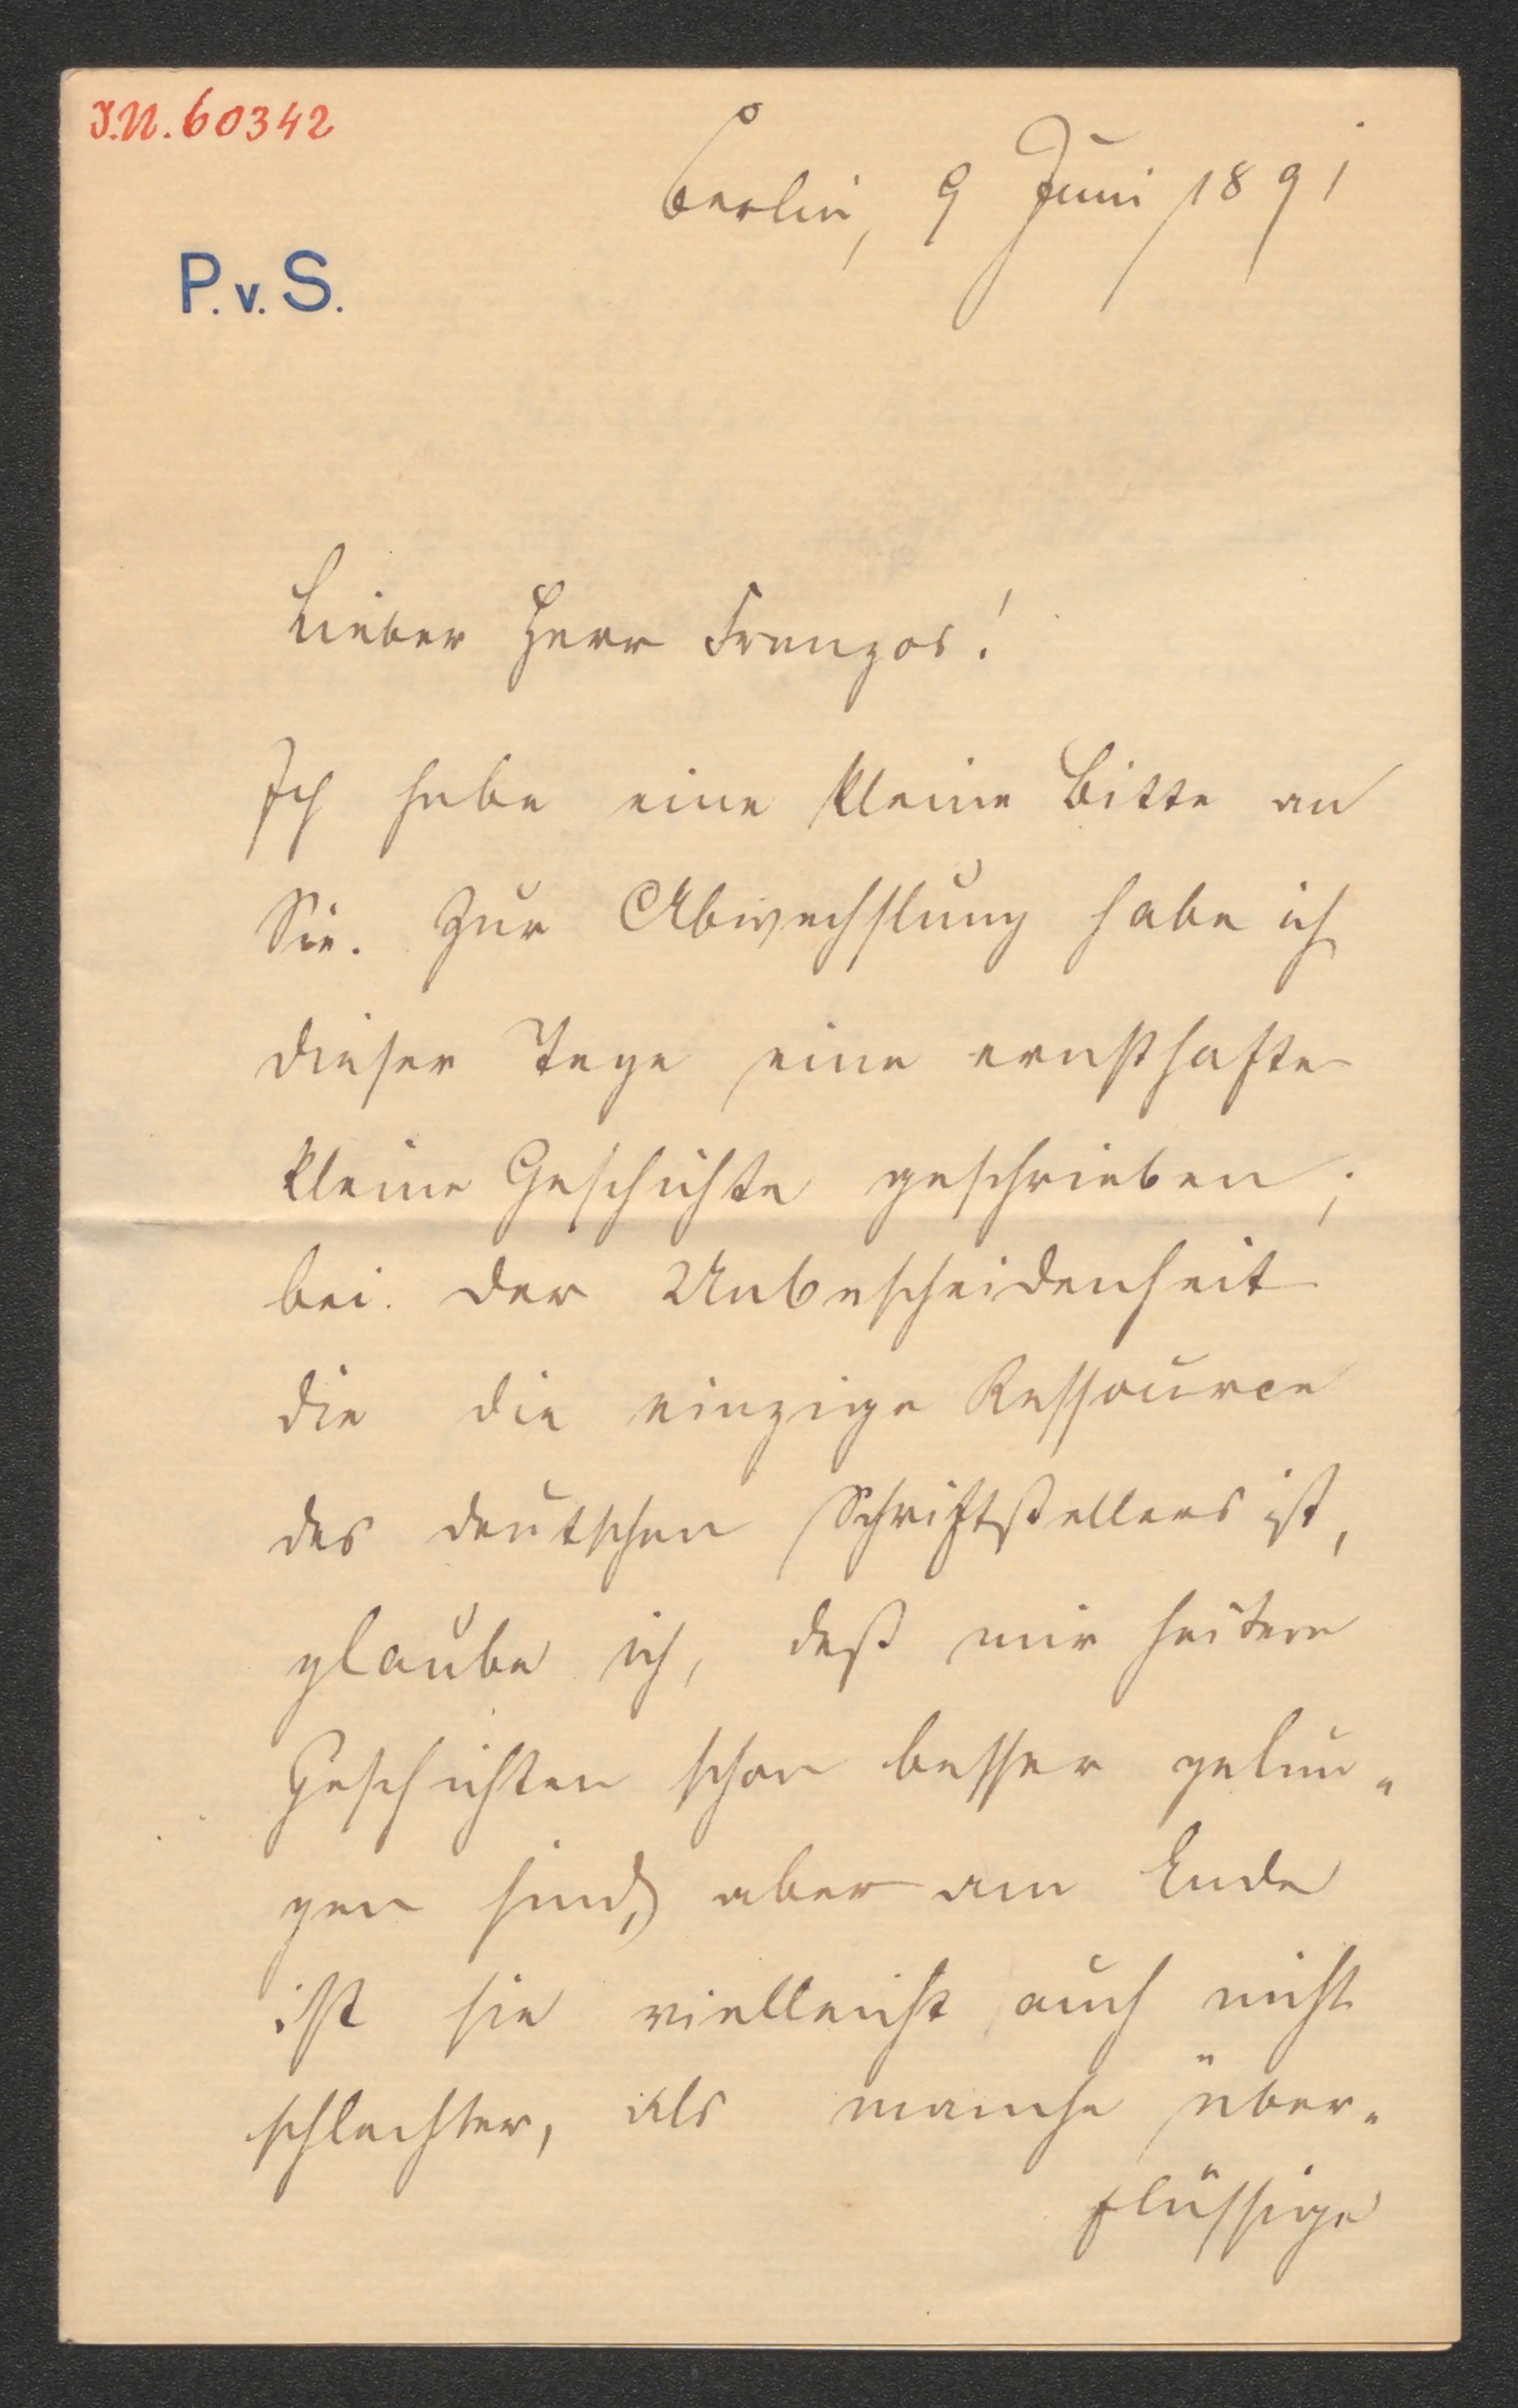 J.N. 60342
Berlin, 9 Juni 1891
P. v. S.
Lieber Herr Franzos!
Ich habe eine kleine Bitte an
Sie. Zur Abwechslung habe ich
dieser Tage eine ernsthafte
kleine Geschichte geschrieben;
bei der Unbescheidenheit
die die einzige Ressource
des deutschen Schriftstellers ist,
glaube ich, daß mir heitere
Geschichten schon besser gelun-
gen sind, aber am Ende
ist sie vielleicht auch nicht
schlechter, als manche über-
flüssige